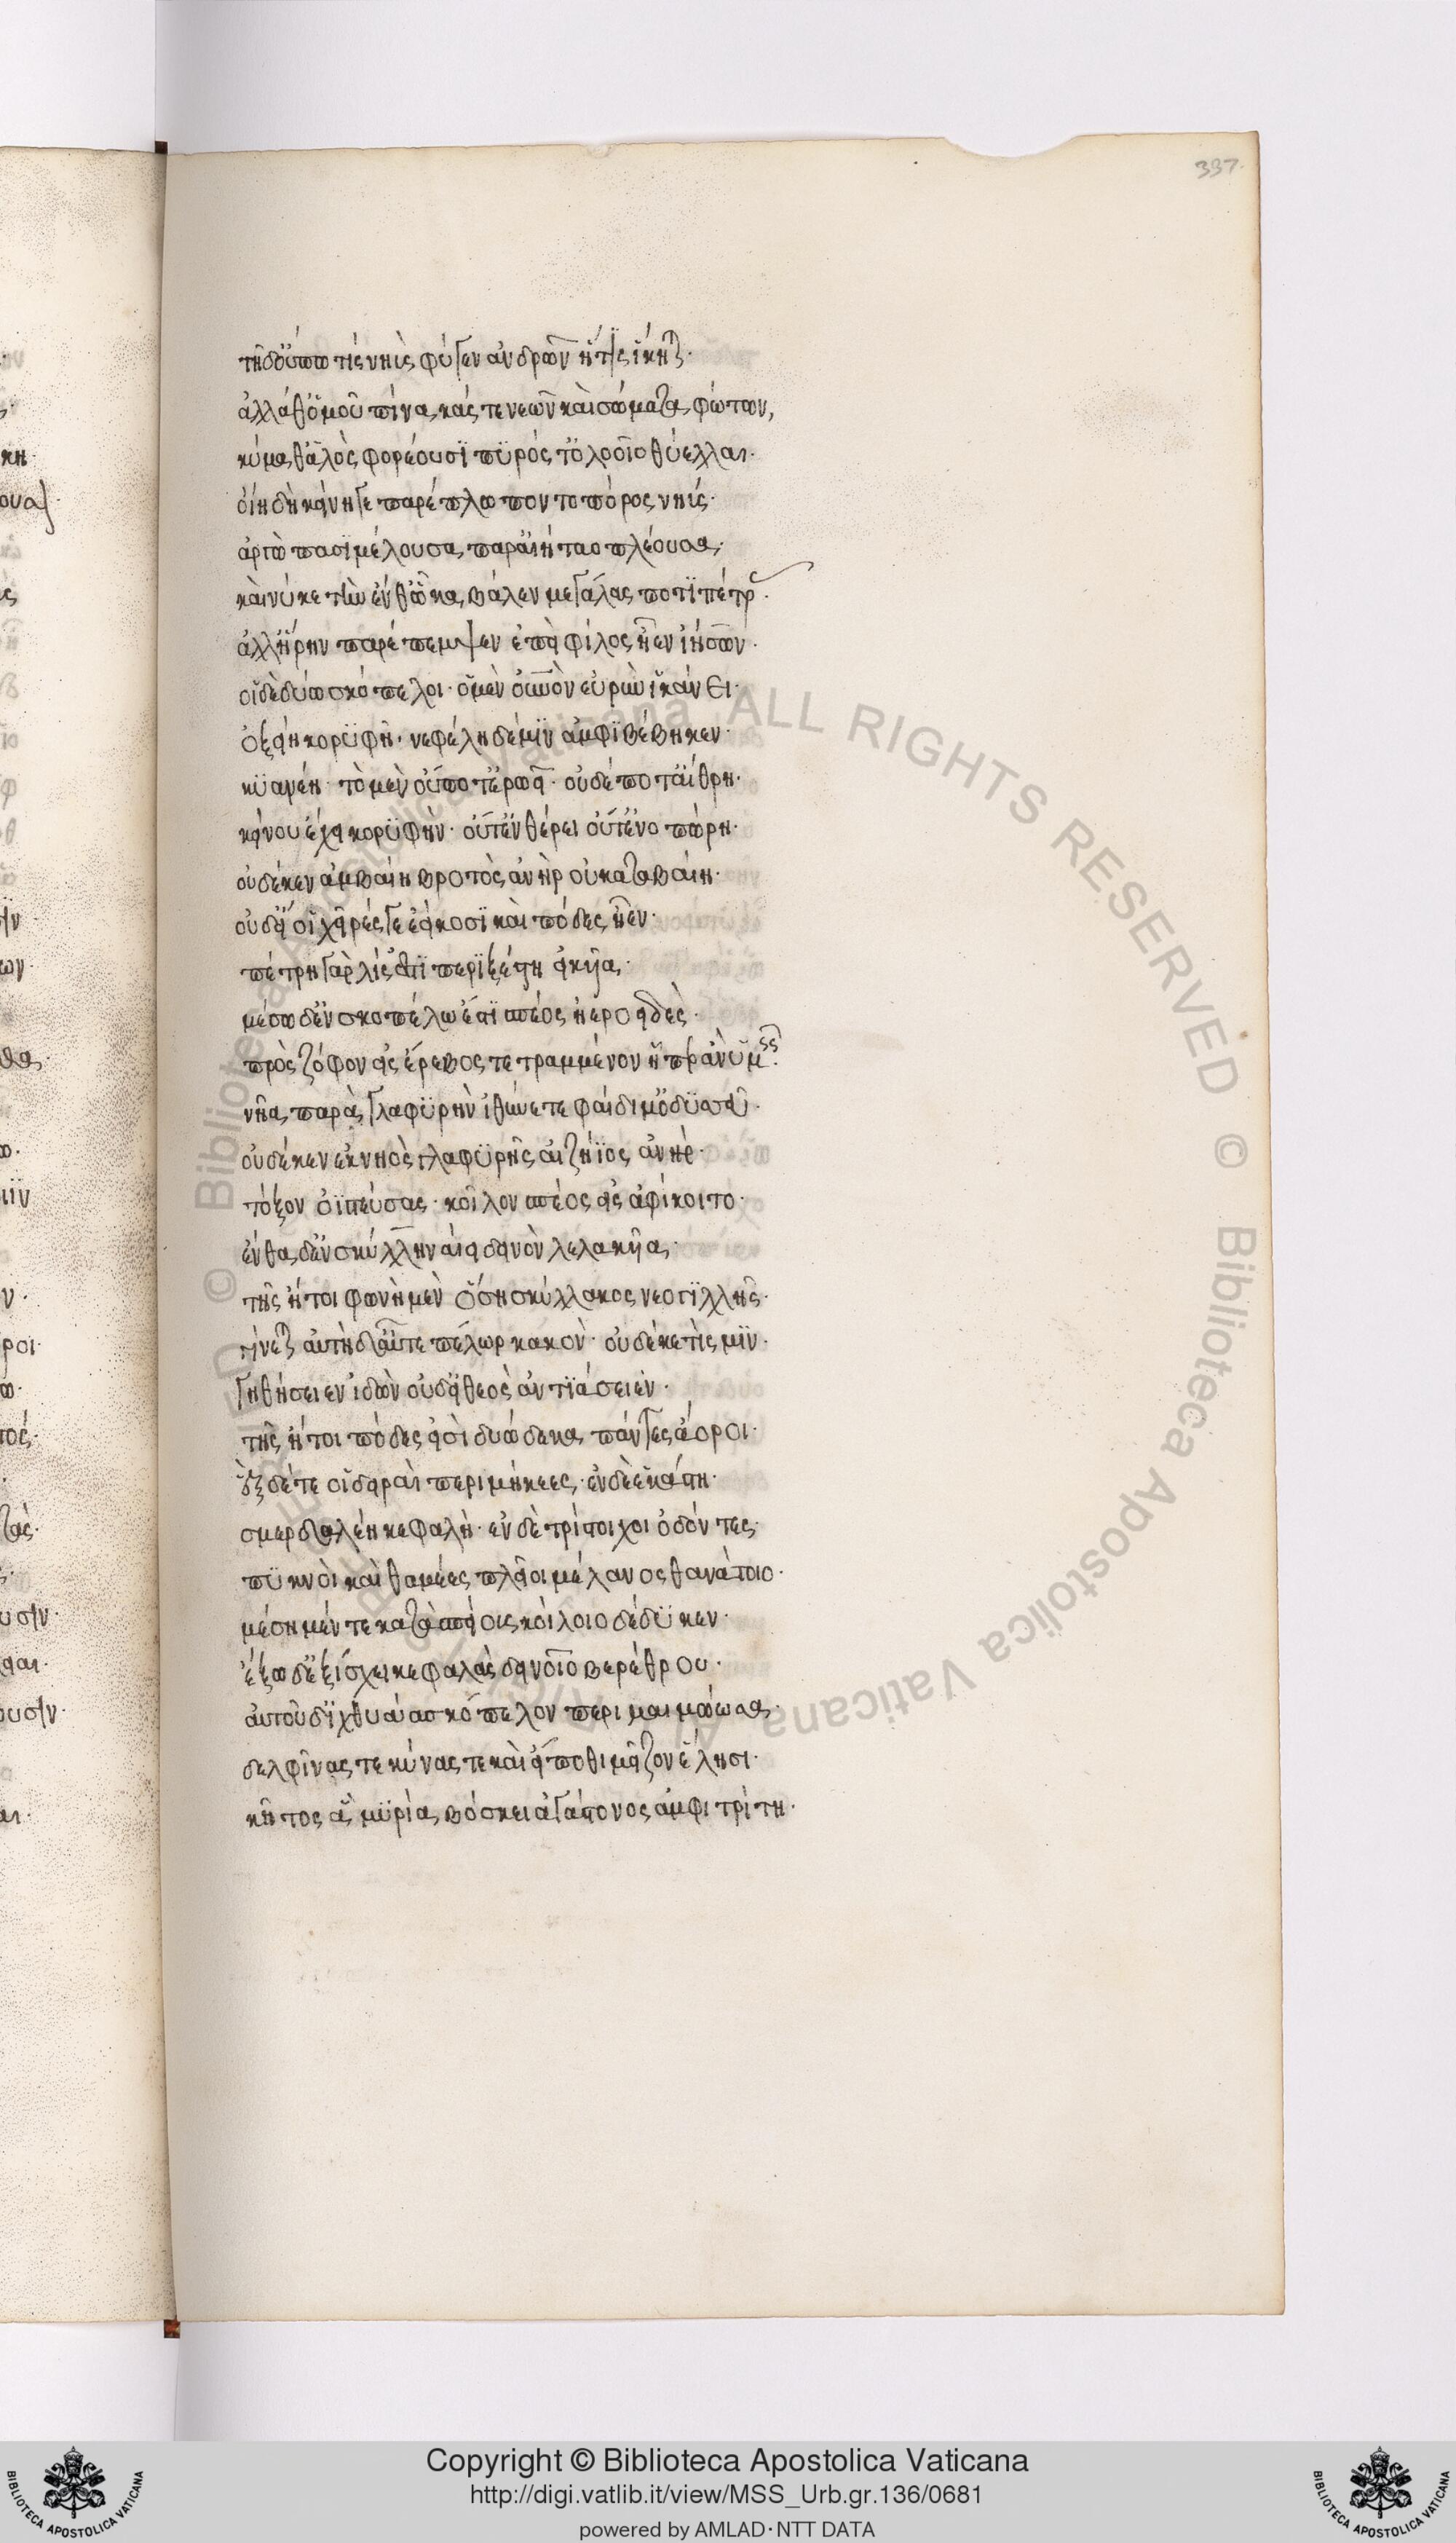 337
τῆ δ' οὔπω τίς νηῦς φύγεν ἀνδρῶν ἥτις ἵκηται·
ἀλλά θ' ὁμοῦ πίνακάς τε νεῶν καὶ σώματα φώτων,
κύμαθ' ἁλὸς φορέουσι πυρός τ' ὀλοοῖο θύελλαι·
οἴη δὴ κείνη γε παρέπλω ποντοπόρος νηῦς·
ἀργὼ πᾶσι μέλουσα παρ' αἰήταο πλέουσα·
καί νύ κε τὴν ἔνθ' ὦκα βάλεν μεγάλας ποτὶ πέτρας·
ἀλλ' ἥρη παρέπεμψεν ἐπεὶ φίλος ἦεν ἰήσων·
οἱ δὲ δύω σκόπελοι· ὁ μὲν οὐρανὸν εὐρὺν ἱκάνει·
ὀξείη κορυφῆ· νεφέλη δέ μιν ἀμφιβέβηκεν·
κυανέη· τὸ μὲν οὔποτ' ἐρωεῖ· οὐδέ ποτ' αἴθρη·
κείνου ἔχει κορυφήν· οὔτ' ἐν θέρει οὔτ' ἐν ὀπώρη·
οὐδέ κεν ἀμβαίη βροτὸς ἀνὴρ οὐ καταβαίη·
οὐδ' εἴ οἱ χεῖρές γε ἐείκοσι καὶ πόδες ἦεν·
πέτρη γὰρ λίς ἐστι περιξέστη εἰκυῖα·
μέσω δ' ἐν σκοπέλω ἔστι σπέος ἠεροειδὲς·
πρὸς ζόφον εἰς ἔρεβος τετραμμένον ἧπερ ἂν ὑμεῖς·
νῆα παρὰ γλαφυρὴν ἰθύνετε φαίδιμ' ὀδυσσεῦ·
οὐδέ κεν ἐκ νηὸς γλαφυρῆς αἰζήϊος ἀνὴρ·
τόξον ὀϊστεύσας· κοῖλον σπέος εἰς ἀφίκοιτο·
ἔνθα δ' ἐν σκύλλη ναίει δεινὸν λελακυῖα·
τῆς ἤτοι φωνὴ μὲν ὅση σκύλλακος νεογιλλῆς·
γίνεται αὐτὴ δ' αὖτε πέλωρ κακὸν· οὐδέ κέ τίς μιν·
γηθήσειεν ἰδὼν οὐδ' εἰ θεὸς ἀντιάσειεν·
τῆς ἤτοι πόδες εἰσὶ δυώδεκα πάντες ἄωροι·
ἓξ δέ τέ οἱ δειραὶ περιμήκεες· ἐν δὲ ἑκάστη·
σμερδαλέη κεφαλὴ· ἐν δὲ τρίστοιχοι ὀδόντες·
πυκνοὶ καὶ θαμέες πλεῖοι μέλανος θανάτοιο·
μέση μέν τε κατὰ σπείους κοίλοιο δέδυκεν·
ἔξω δ' ἐξίσχει κεφαλὰς δεινοῖο βερέθρου·
αὐτοῦ δ' ἰχθυάα σκόπελον περιμαιμώωσα·
δελφῖνάς τε κύνας τε καὶ εἴ ποθι μεῖζον ἕλησι·
κῆτος ἃ μυρία βόσκει ἀγάστονος ἀμφιτρίτη·
Copyright © Biblioteca Apostolica Vaticana
http://digi.vatlib.it/view/MSS_Urb.gr.136/0681
powered by AMLAD·NTT DATA